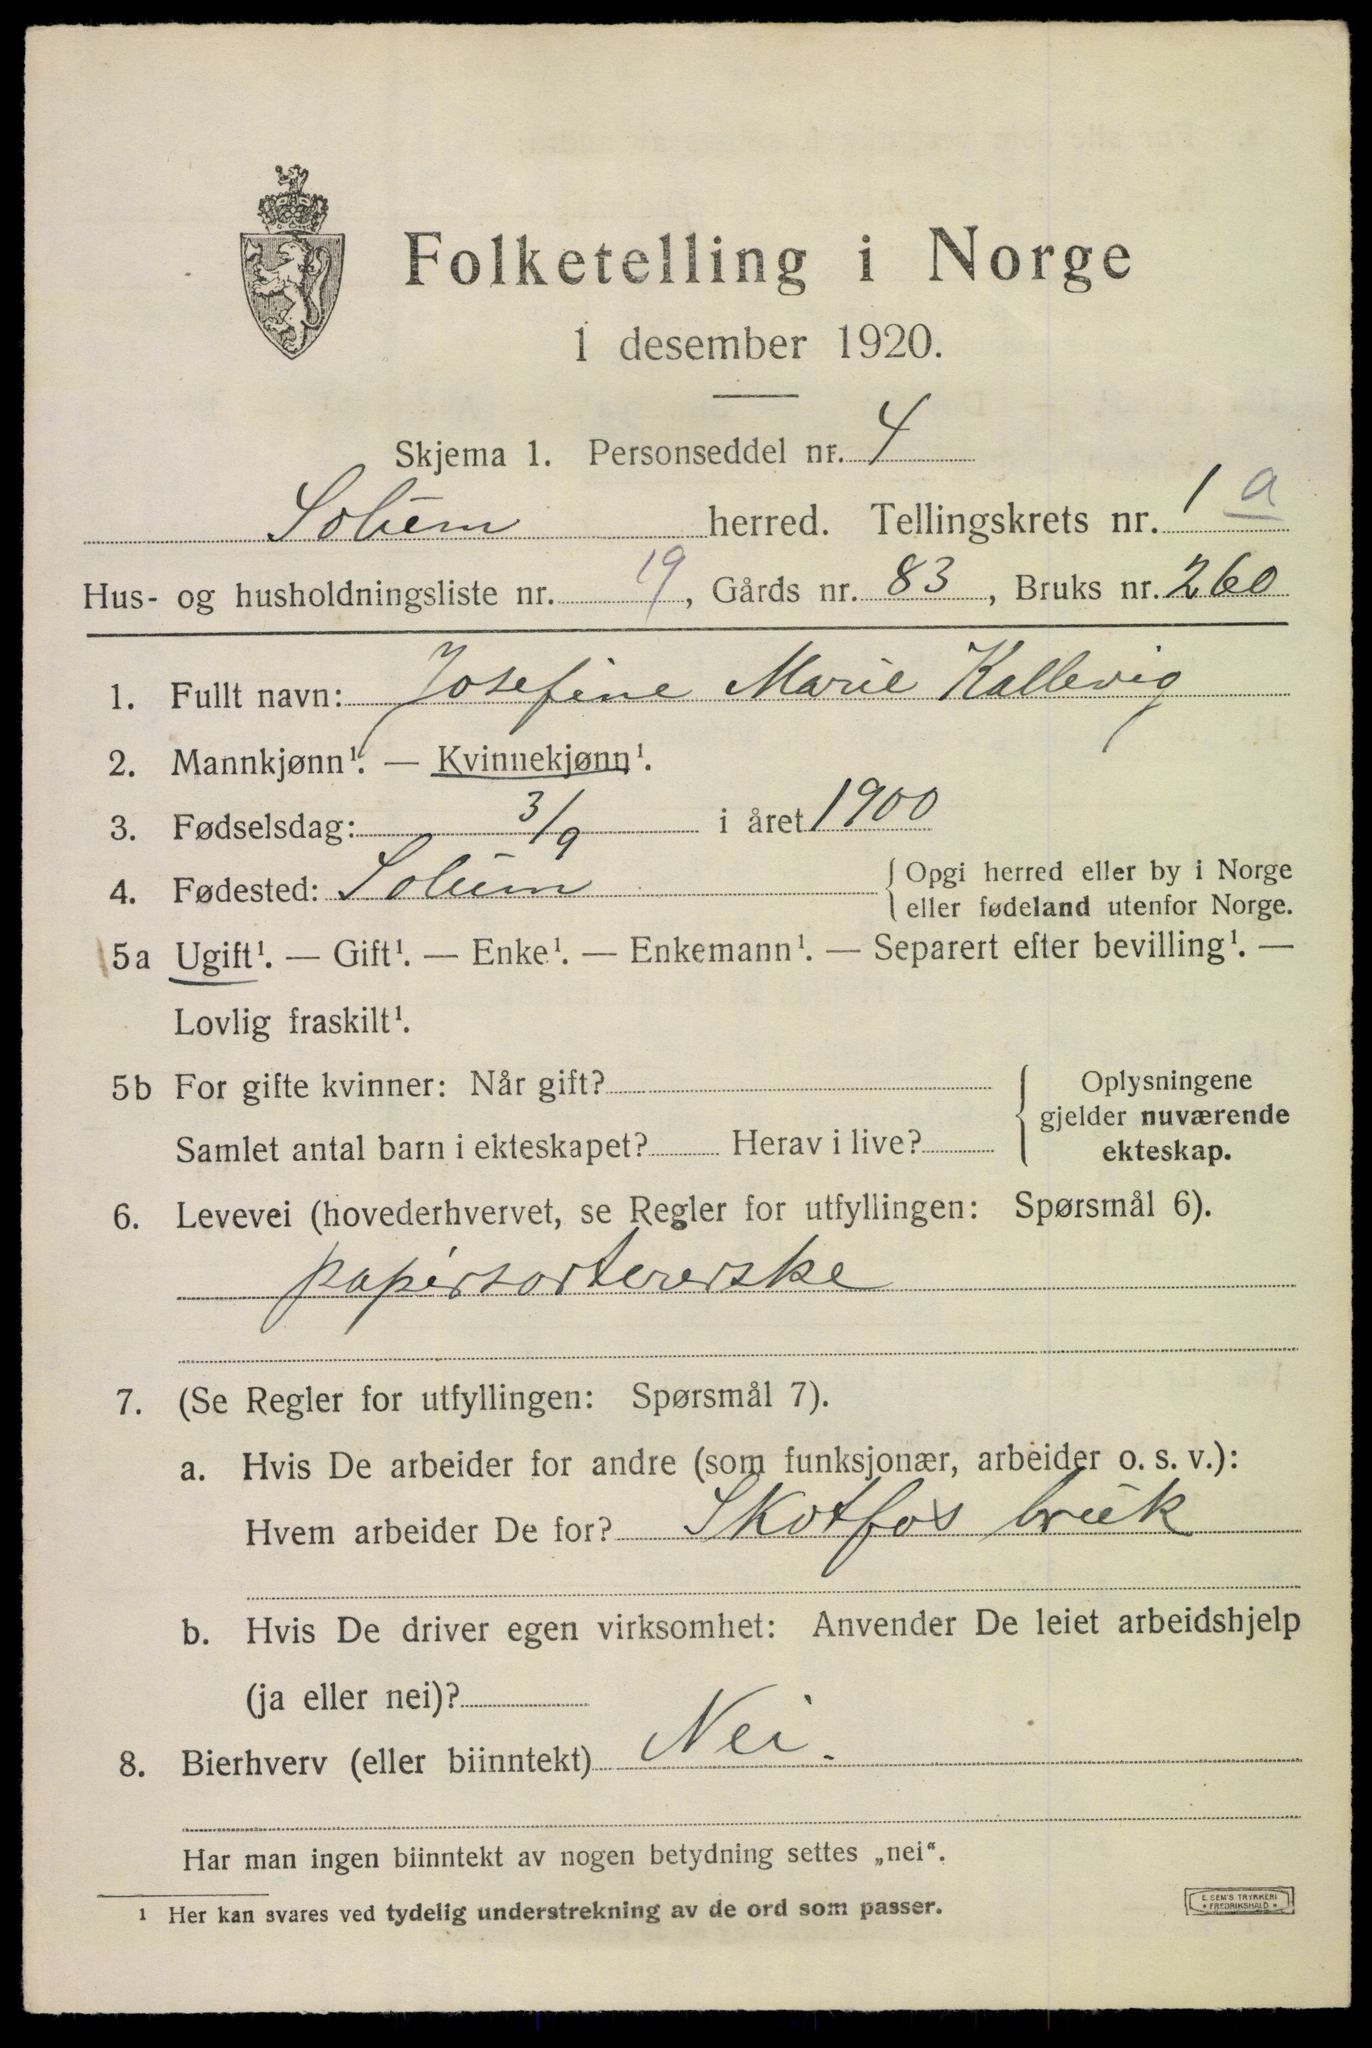 Folketelling i Norge
1 desember 1920.
Skjema 1. Personseddel nr. 4
Solum herred. Tellingskrets nr. 1 a
Hus- og husholdningsliste nr. 19, Gårds nr. 83, Bruks nr. 260
1. Fullt navn: Josefine Marie Kallevig
2. Mannkjønn¹. — Kvinnekjønn¹.
3. Fødselsdag: 3/9 i året 1900
4. Fødested: Solum { Opgi herred eller by i Norge
eller fødeland utenfor Norge.
5a Ugift¹. — Gift¹. — Enke¹. — Enkemann¹. — Separert efter bevilling¹. —
Lovlig fraskilt¹.
5b For gifte kvinner: Når gift? Oplysningene
gjelder nuværende
Samlet antal barn i ekteskapet? Herav i live? ekteskap.
6. Levevei (hovederhvervet, se Regler for utfyllingen: Spørsmål 6).
papirsortererske
7. (Se Regler for utfyllingen: Spørsmål 7).
a. Hvis De arbeider for andre (som funksjonær, arbeider o. s. v.):
Hvem arbeider De for? Skotfos bruk
b. Hvis De driver egen virksomhet: Anvender De leiet arbeidshjelp
(ja eller nei)?
8. Bierhverv (eller biinntekt) Nei.
Har man ingen biinntekt av nogen betydning settes „nei“.
¹ Her kan svares ved tydelig understrekning av de ord som passer.
E. SEM'S TRYKKERI
* FREDRIKSHALD *